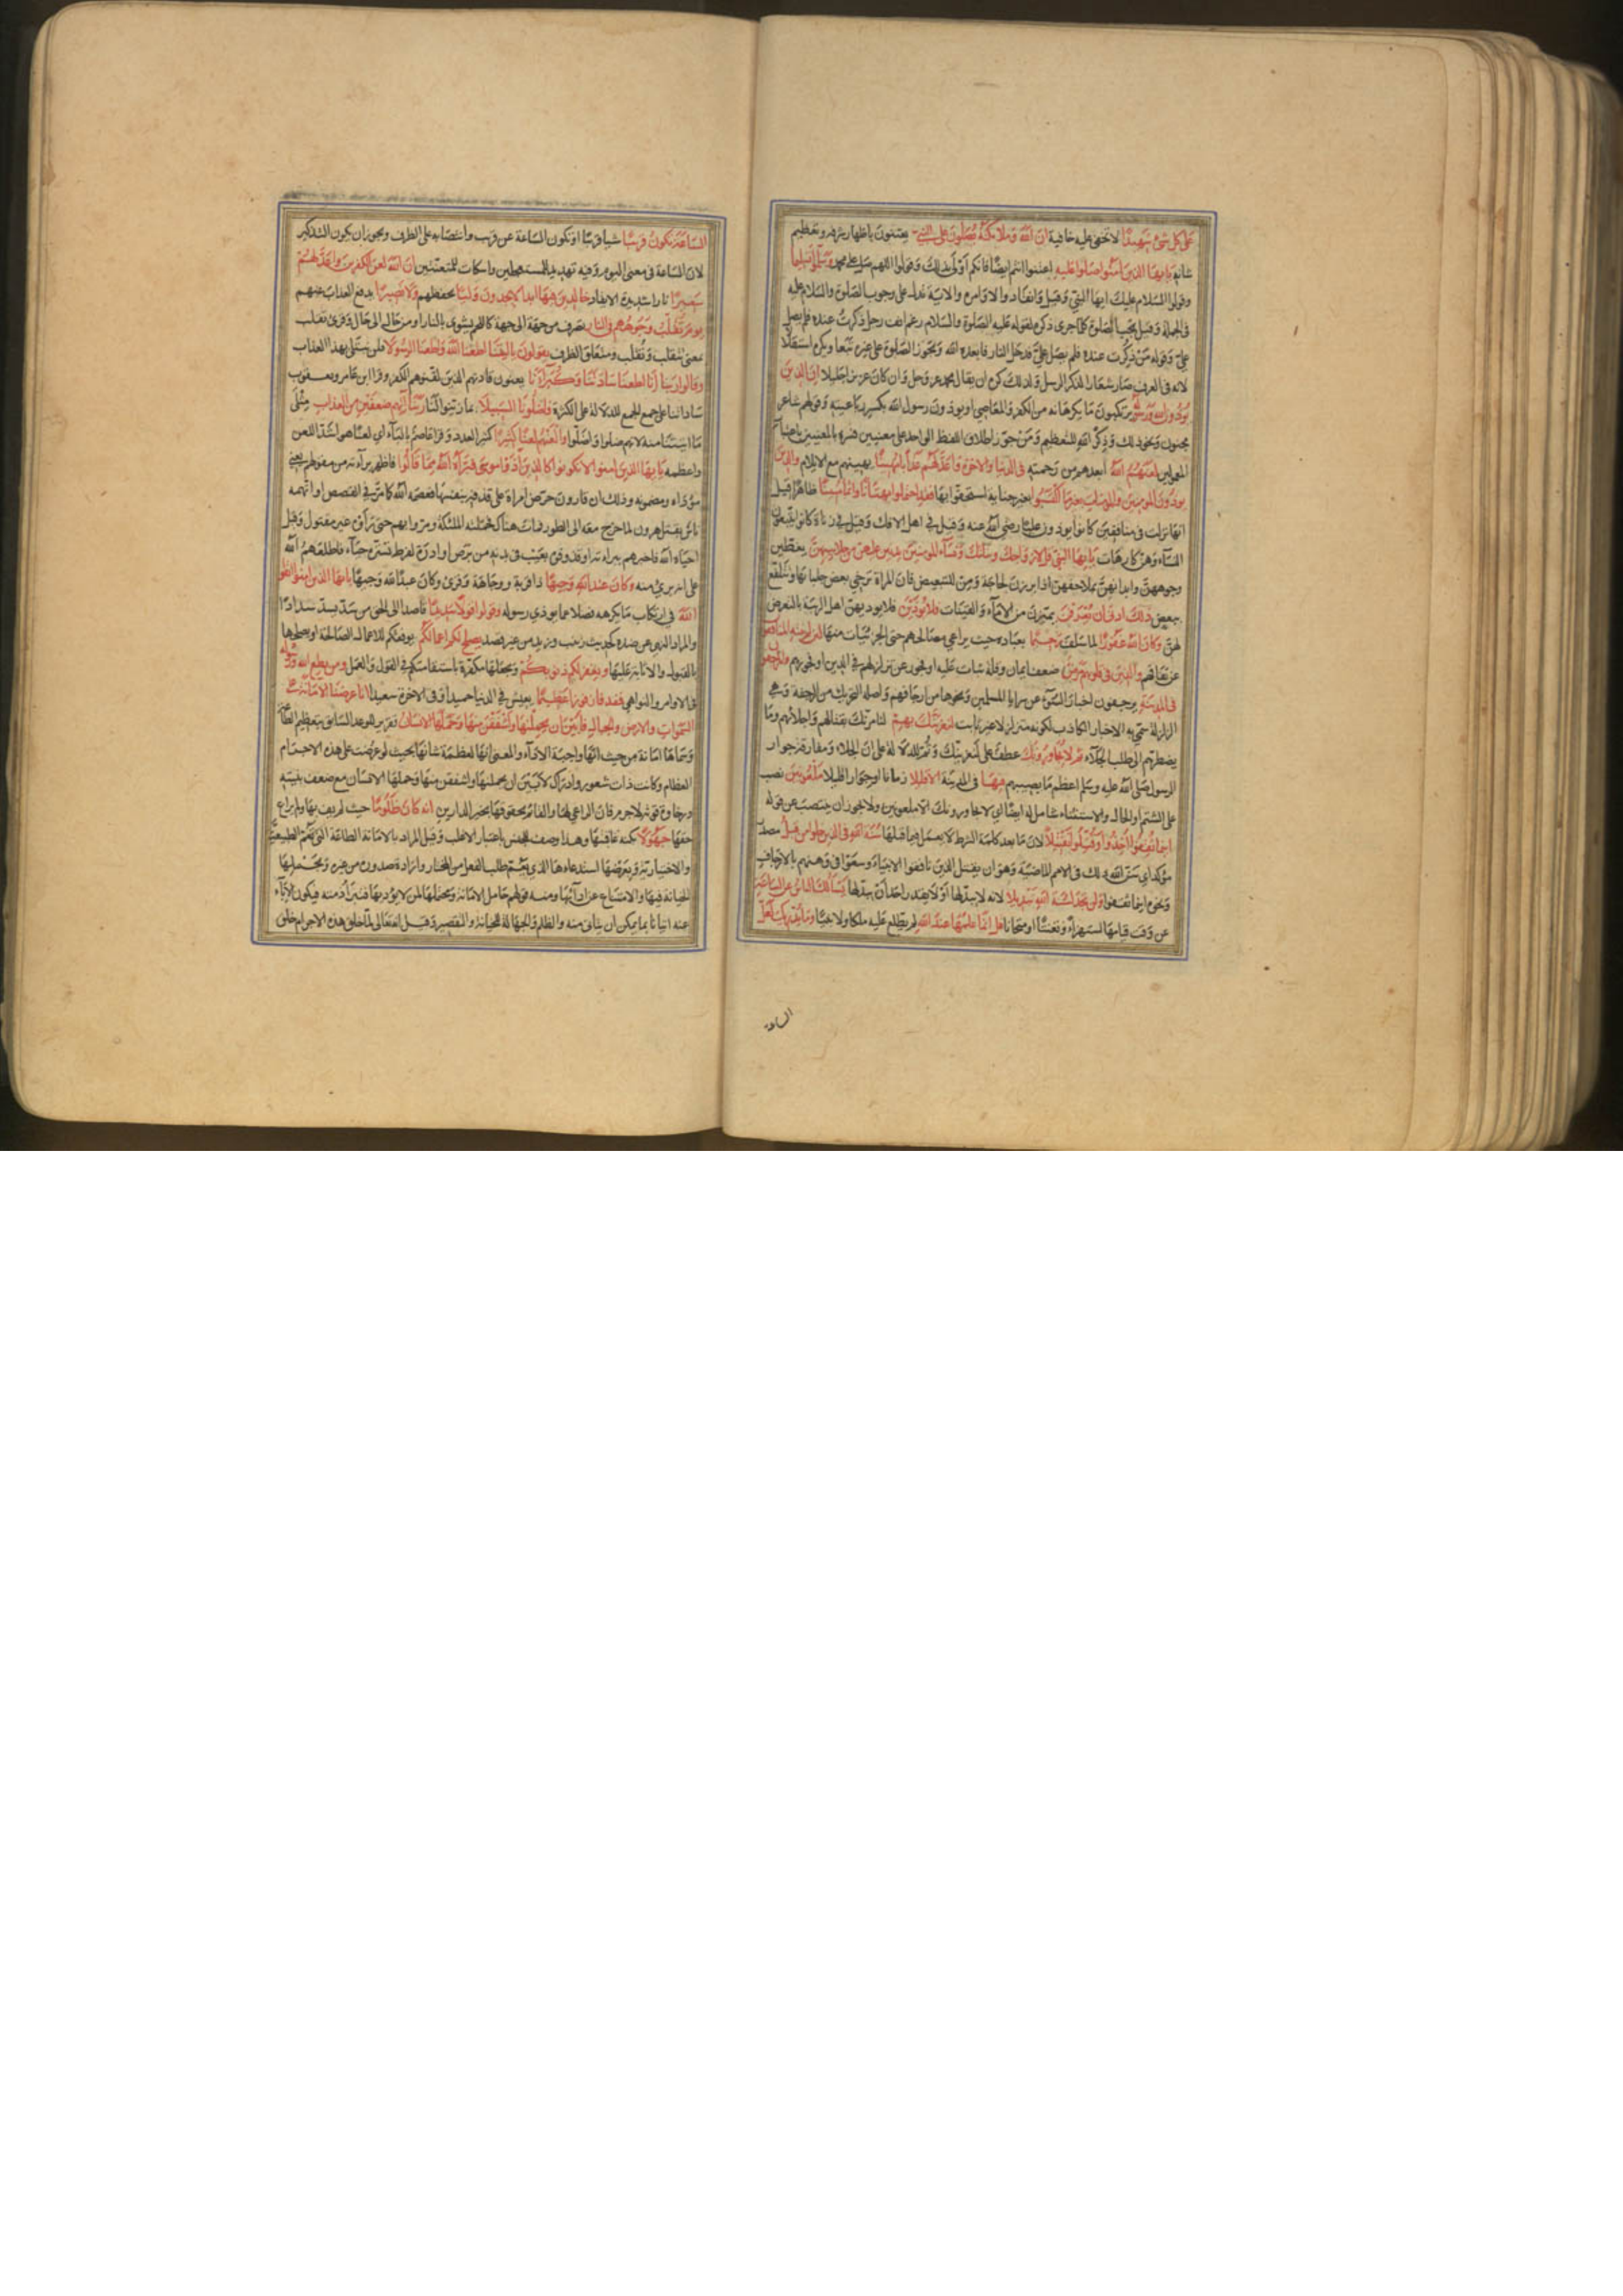 على كل شئ شهيدا لا تخفى عليه خافية ان الله وملائكته يصلون على النبي يعتنون باظهار شرفه وتعظيم
شانه يا ايها الذين آمنوا صلوا عليه اعتنوا انتم ايضا فانكم اولى بذلك وقولوا اللهم صل على محمد وسلموا تسليما
وقولوا السلام عليك ايها النبي وقيل وانقادوا لاوامره والاية تدل على وجوب الصلوة والسلام عليه
فى الجملة وقيل يجب الصلوة كلما جرى ذكره لقوله عليه الصلوة والسلام رغم انف رجل ذكرت عنده فلم يصل
علي وقوله من ذكرت عنده فلم يصل علي فدخل النار فابعده الله ويجوز الصلوة على غيره تبعا ويكره استقلالا
لانه فى العرف صار شعارا لذكر الرسل ولذلك كره ان يقال محمد عز وجل وان كان عزيزا جليلا ان الذين
يؤذون الله ورسوله يرتكبون ما يكرهانه من الكفر والمعاصي او يؤذون رسول الله بكسر رباعيته وقولهم شاعر
مجنون ونحو ذلك وذكر الله للتعظيم ومن جوز اطلاق اللفظ الواحد على معنيين فسره بالمعنيين باعتبار
المعمولين لعنهم الله ابعدهم من رحمته فى الدنيا والاخرة واعد لهم عذابا مهينا يهينهم مع الايلام والذين
يؤذون المؤمنين والمؤمنات بغير ما اكتسبوا بغير جناية استحقوا بها فقد احتملوا بهتانا واثما مبينا ظاهرا قيل
انها نزلت فى منافقين كانوا يؤذون عليا رضي الله عنه وقيل فى اهل الافك وقيل فى زناة كانوا يتبعون
النساء وهن كارهات يا ايها النبي قل لازواجك وبناتك ونساء المؤمنين يدنين عليهن من جلابيبهن يغطين
وجوههن وابدانهن بملاحفهن اذا برزن لحاجة ومن للتبعيض فان المراة ترخي بعض جلبابها وتتلفع
ببعض ذلك ادنى ان يعرفن يميزن من الاماء والقينات فلا يؤذين فلا يؤذيهن اهل الريبة بالتعرض
لهن وكان الله غفورا لما سلف رحيما بعباده حيث يراعي مصالحهم حتى الجزئيات منها لئن لم ينته المنافقون
عن نفاقهم والذين فى قلوبهم مرض ضعف ايمان وقلة ثبات عليه او فجور عن تزلزلهم فى الدين او فجورهم والمرجفون
فى المدينة يرجفون اخبار السوء عن سرايا المسلمين ونحوها من ارجافهم واصله التحريك من الرجفة وهي
الزلزلة سمي به الاخبار الكاذب لكونه متزلزلا غير ثابت لنغرينك بهم لنامرنك بقتالهم واجلائهم وما
يضطرهم الى طلب الجلاء ثم لا يجاورونك عطف على لنغرينك وثم للدلالة على ان الجلاء ومفارقة جوار
الرسول صلى الله عليه وسلم اعظم ما يصيبهم فيها فى المدينة الا قليلا زمانا او جوارا قليلا ملعونين نصب
على الشتم او الحال والاستثناء شامل له ايضا اي لا يجاورونك الا ملعونين ولا يجوز ان ينتصب عن قوله
اينما ثقفوا اخذوا وقتلوا تقتيلا لان ما بعد كلمة الشرط لا يعمل فيما قبلها سنة الله فى الذين خلوا من قبل مصدر
مؤكد اي سن الله ذلك فى الامم الماضية وهو ان يقتل الذين نافقوا الانبياء وسعوا فى وهنهم بالارجاف
ونحوه اينما ثقفوا ولن تجد لسنة الله تبديلا لانه لا يبدلها او لا يقدر احد ان يبدلها يسئلك الناس عن الساعة
عن وقت قيامها استهزاء وتعنتا او امتحانا قل انما علمها عند الله لم يطلع عليه ملكا ولا نبيا وما يدريك لعل
الساعة
الساعة تكون قريبا شيا قريبا او تكون الساعة عن قريب وانتصابه على الظرف ويجوز ان يكون التذكير
لان الساعة فى معنى اليوم وفيه تهديد للمستعجلين واسكات للمتعنتين ان الله لعن الكفرين واعد لهم
سعيرا نارا شديدة الايقاد خالدين فيها ابدا لا يجدون وليا يحفظهم ولا نصيرا يدفع العذاب عنهم
يوم تقلب وجوههم فى النار تصرف من جهة الى جهة كاللحم يشوى بالنار او من حال الى حال وقرئ تقلب
بمعنى تتقلب ونقلب ومتعلق الظرف يقولون يا ليتنا اطعنا الله واطعنا الرسولا فلن نبتلى بهذا العذاب
وقالوا ربنا انا اطعنا سادتنا وكبراءنا يعنون قادتهم الذين لقنوهم الكفر وقرا ابن عامر ويعقوب
ساداتنا على جمع الجمع للدلالة على الكثرة فاضلونا السبيلا بما زينوا لنا ربنا آتهم ضعفين من العذاب مثلي
ما آتيتنا منه لانهم ضلوا واضلوا والعنهم لعنا كثيرا كثير العدد وقرا عاصم بالباء اي لعنا هو اشد اللعن
واعظمه يا ايها الذين امنوا لا تكونوا كالذين آذوا موسى فبراه الله مما قالوا فاظهر براءته من مقولهم يعني
مؤداه ومضمونه وذلك ان قارون حرض امراة على قذفه بنفسها فعصمه الله كما مر فى القصص او اتهمه
ناس بقتل هرون لما خرج معه الى الطور فمات هناك فحملته الملئكة ومروا بهم حتى راوه غير مقتول وقيل
احياه الله فاخبرهم ببراءته او قذفوه بعيب فى بدنه من برص او ادرة لفرط تستره حياء فاطلعهم الله
على انه برئ منه وكان عند الله وجيها ذا قربة ووجاهة وقرئ وكان عبد الله وجيها يا ايها الذين امنوا اتقوا
الله فى ارتكاب ما يكرهه فضلا عما يؤذي رسوله وقولوا قولا سديدا قاصدا الى الحق من سد يسد سدادا
والمراد النهي عن ضده كحديث زينب وزيد من غير قصد يصلح لكم اعمالكم يوفقكم للاعمال الصالحة او يصلحها
بالقبول والاثابة عليها ويغفر لكم ذنوبكم ويجعلها مكفرة باستقامتكم فى القول والعمل ومن يطع الله ورسوله
فى الاوامر والنواهي فقد فاز فوزا عظيما يعيش فى الدنيا حميدا وفى الاخرة سعيدا انا عرضنا الامانة على
السموات والارض والجبال فابين ان يحملنها واشفقن منها وحملها الانسان تقرير للوعد السابق بتعظيم الطاعة
وسماها امانة من حيث انها واجبة الاداء والمعنى انها لعظمة شانها بحيث لو عرضت على هذه الاجرام
العظام وكانت ذات شعور وادراك لابين ان يحملنها واشفقن منها وحملها الانسان مع ضعف بنيته
ورخاوة قوته لا جرم فان الراعي لها والقائم بحقوقها بخير الدارين انه كان ظلوما حيث لم يف بها ولم يراع
حقها جهولا بكنه عاقبتها وهذا وصف للجنس باعتبار الاغلب وقيل المراد بالامانة الطاعة التي تعم الطبيعية
والاختيارية وبعرضها استدعاءها الذي يعم طلب الفعل من المختار وارادة صدوره من غيره وبحملها
الخيانة فيها والامتناع عن ادائها ومنه قولهم حامل الامانة ومحتملها لمن لا يؤديها فتبرا ذمته فيكون الاباء
عنه اتيانا بما يمكن ان يتاتى منه والظلم والجهالة للخيانة والتقصير وقيل انه تعالى لما خلق هذه الاجرام خلق